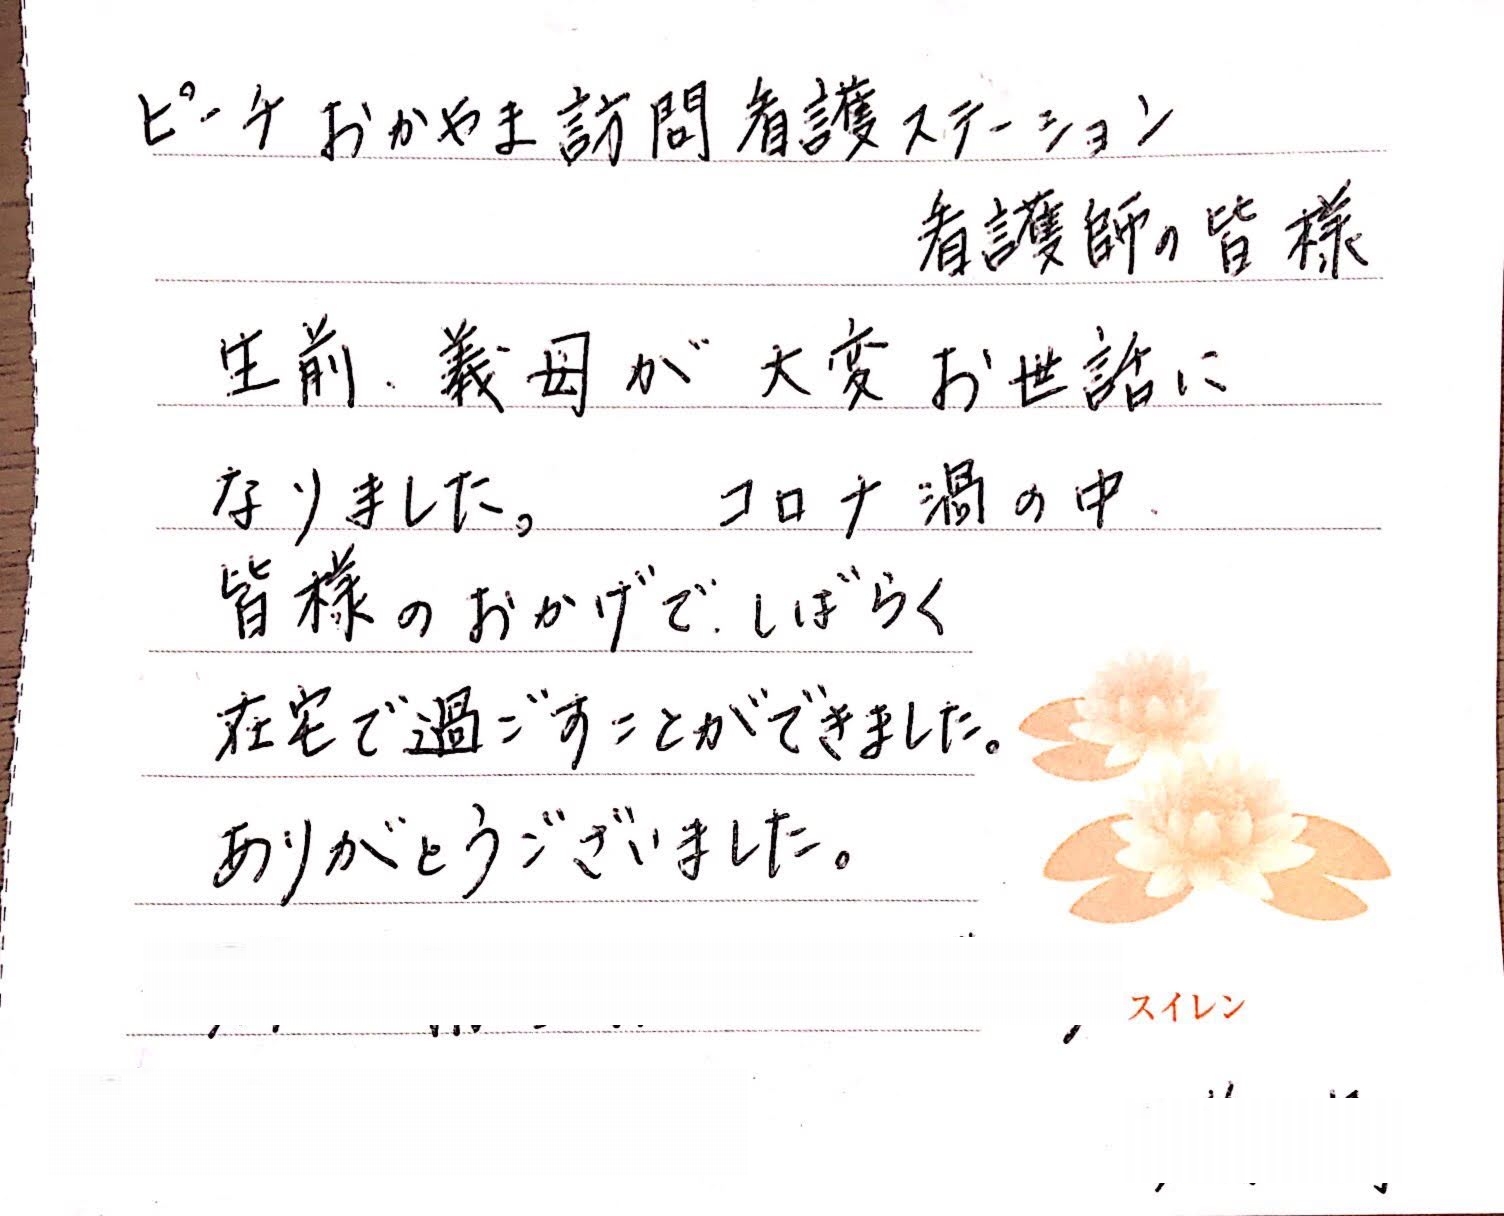 ピーケおかやま訪問看護ステーション
看護師の皆様
生前、義母が大変お世話に
なりました。　コロナ渦の中、
皆様のおかげで、しばらく
在宅で過ごすことができました。
ありがとうございました。
スイレン